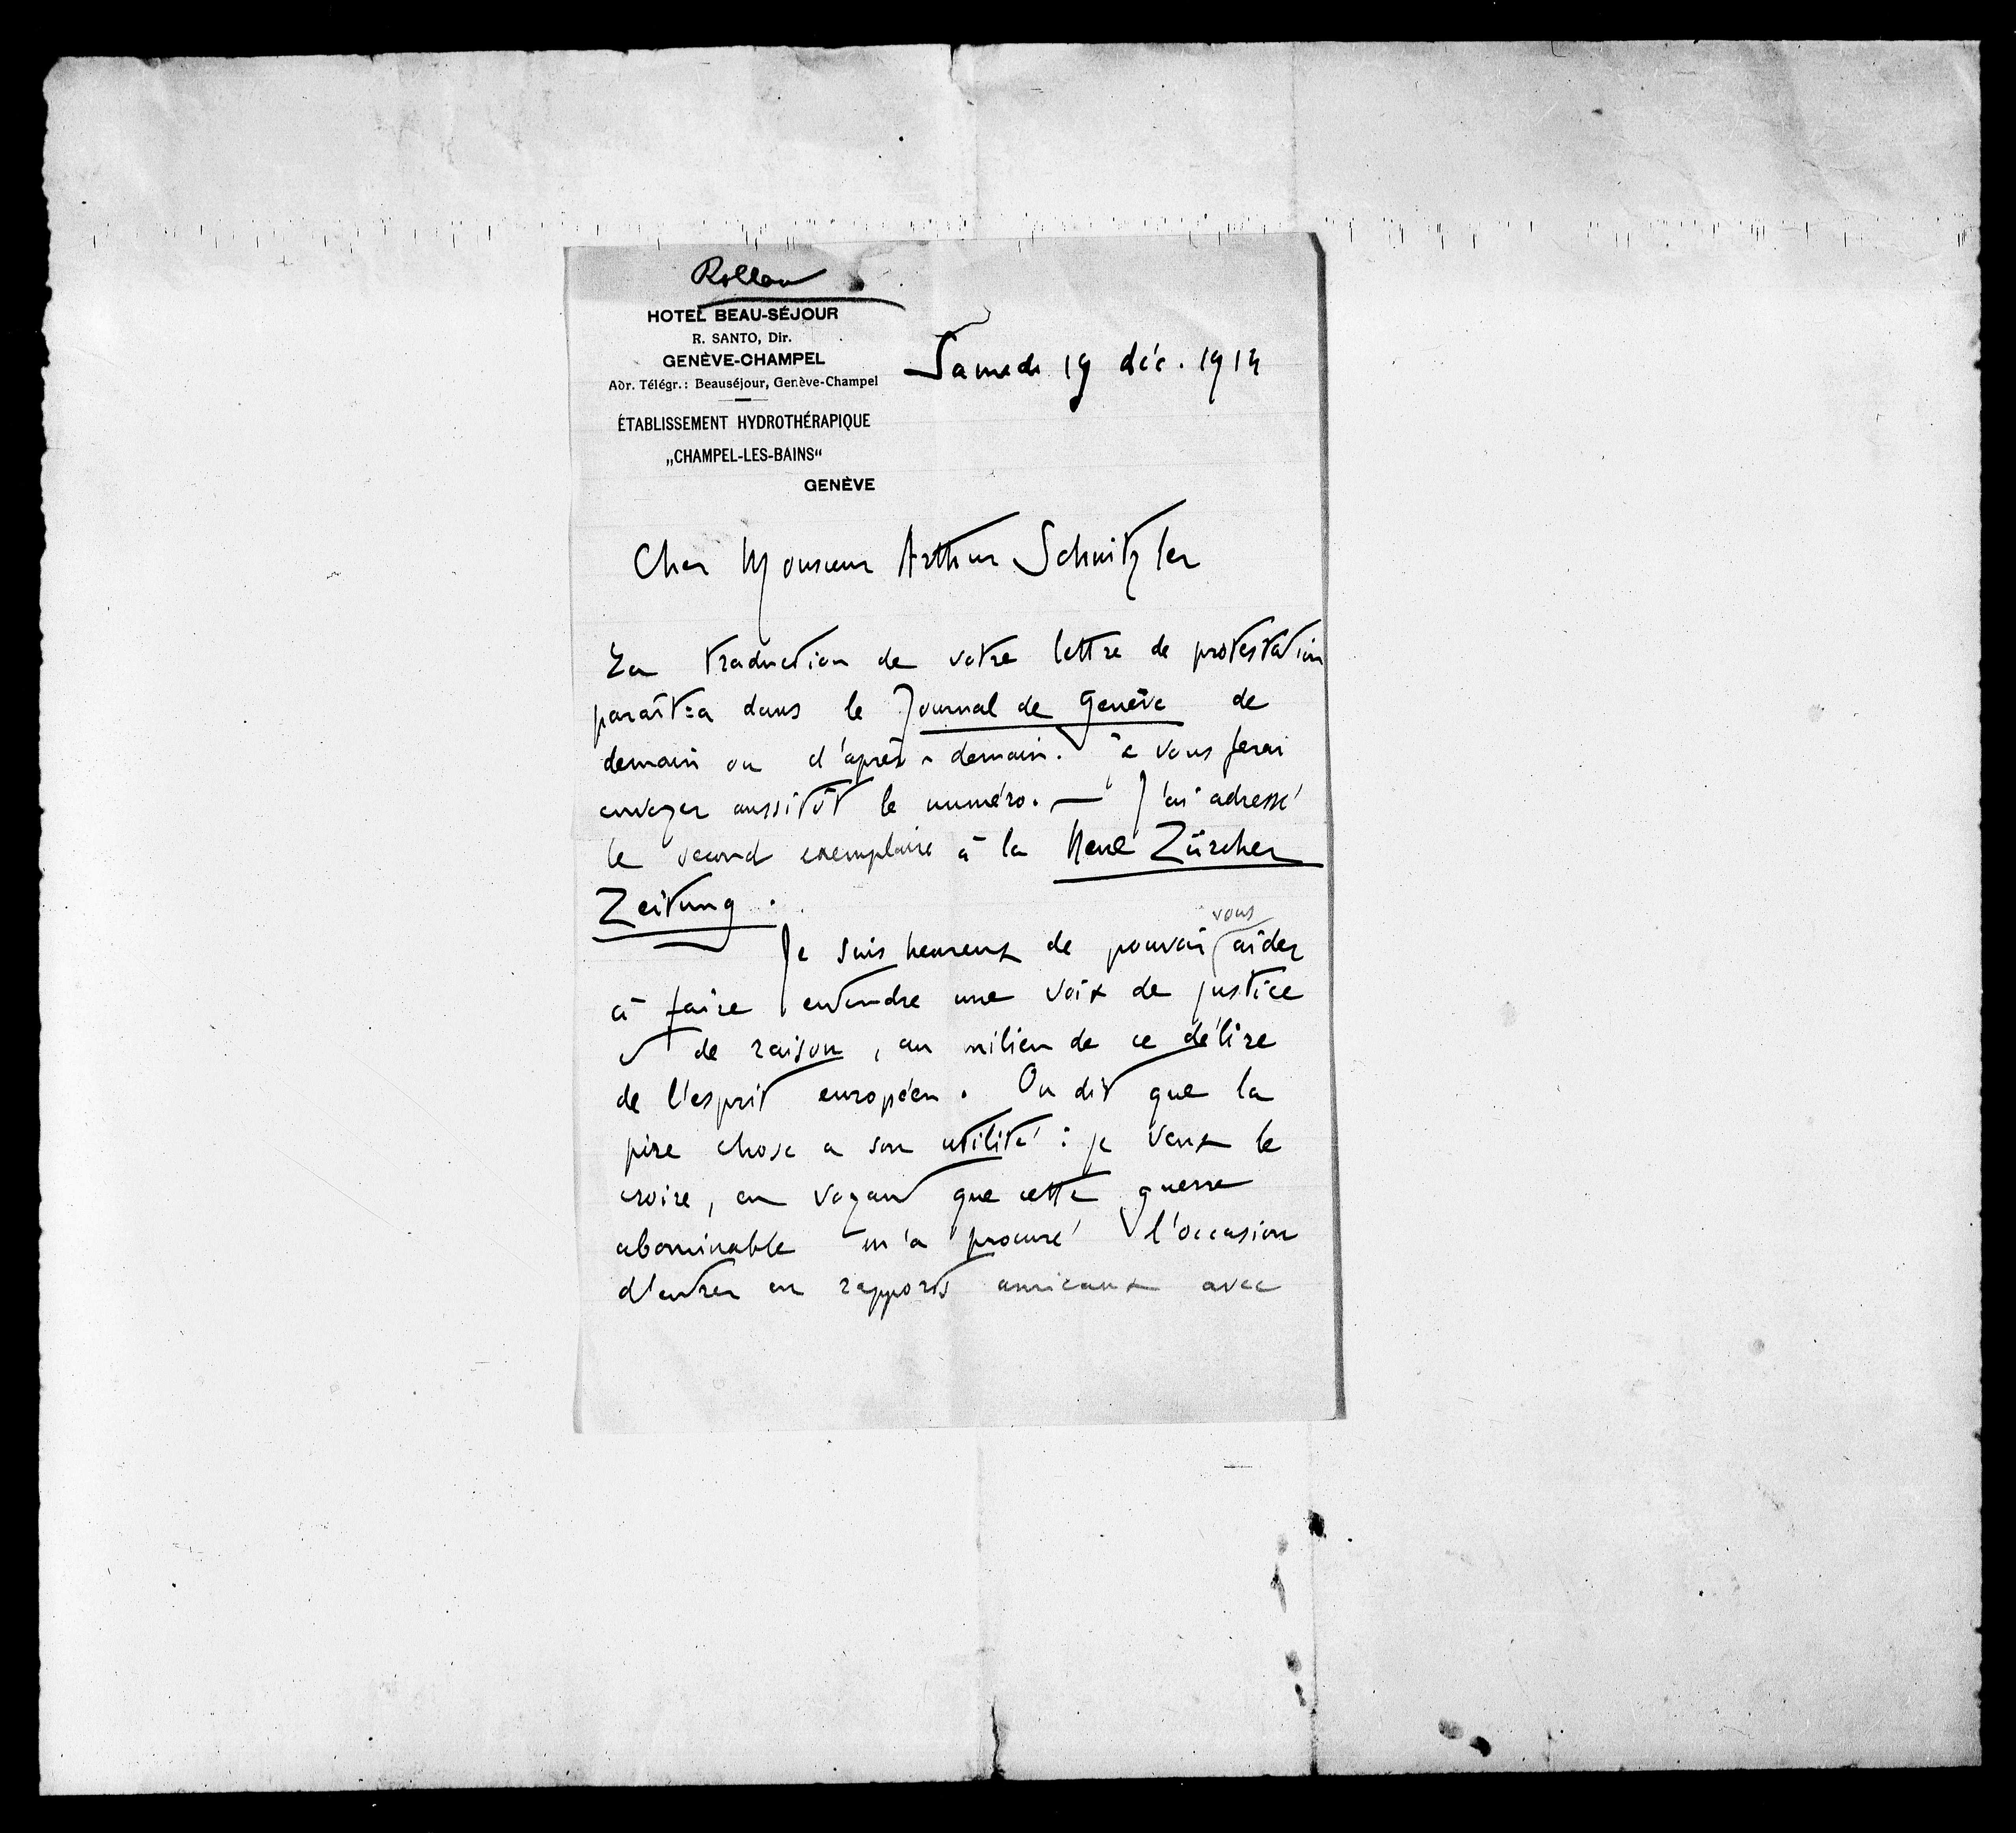 Rolland
HOTEL BEAU-SÉJOUR
R. SANTO, Dir.
GENÈVE-CHAMPEL
Adr. Télégr.: Beauséjour, Genève-Champel
ÉTABLISSEMENT HYDROTHÉRAPIQUE
„CHAMPEL-LES-BAINS“
GENÈVE
Samedi 19 déc. 1914
Cher Monsieur Arthur Schnitzler
La traduction de votre lettre de protestation
paraîtra dans le Journal de Genève de
demain ou d'après-demain. Je vous ferai
envoyer aussitôt le numéro. — J'ai adressé
le second exemplaire à la Neue Zürcher
Zeitung.
Je suis heureux de pouvoir vous aider
à faire entendre une voix de justice
et de raison, au milieu de ce délire
de l'esprit européen. On dit que la
pire chose a son utilité : je veux le
croire, en voyant que cette guerre
abominable m'a procuré l'occasion
d'entrer en rapports amicaux avec